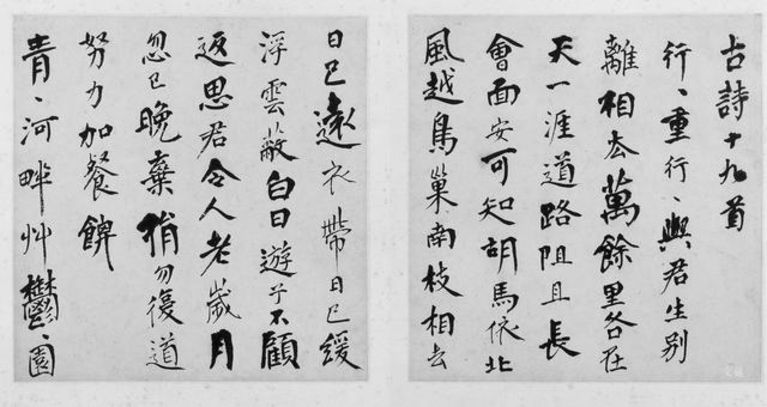 古詩十九首
行〻重行〻與君生別
離相去萬餘里各在
天一涯道路阻且長
會面安可知胡馬依北
風越鳥巢南枝相去
日已遠衣帶日已緩
浮雲蔽白日遊子不顧
返思君令人老歲月
忽已晚棄捐勿復道
努力加餐
青〻河畔艸鬱〻園